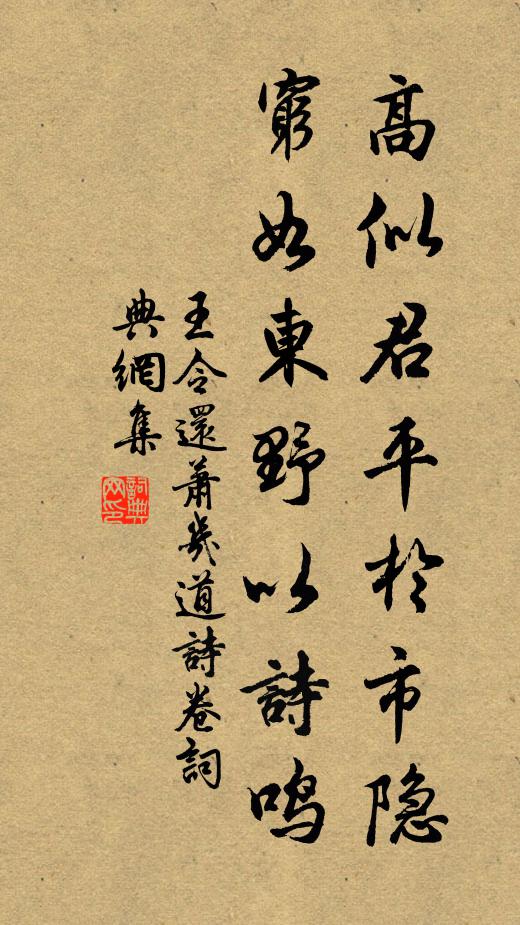 高似君平於市隐
窮如東野以詩鸣
王令還蕭幾道詩卷詞
典網集
詞典网印